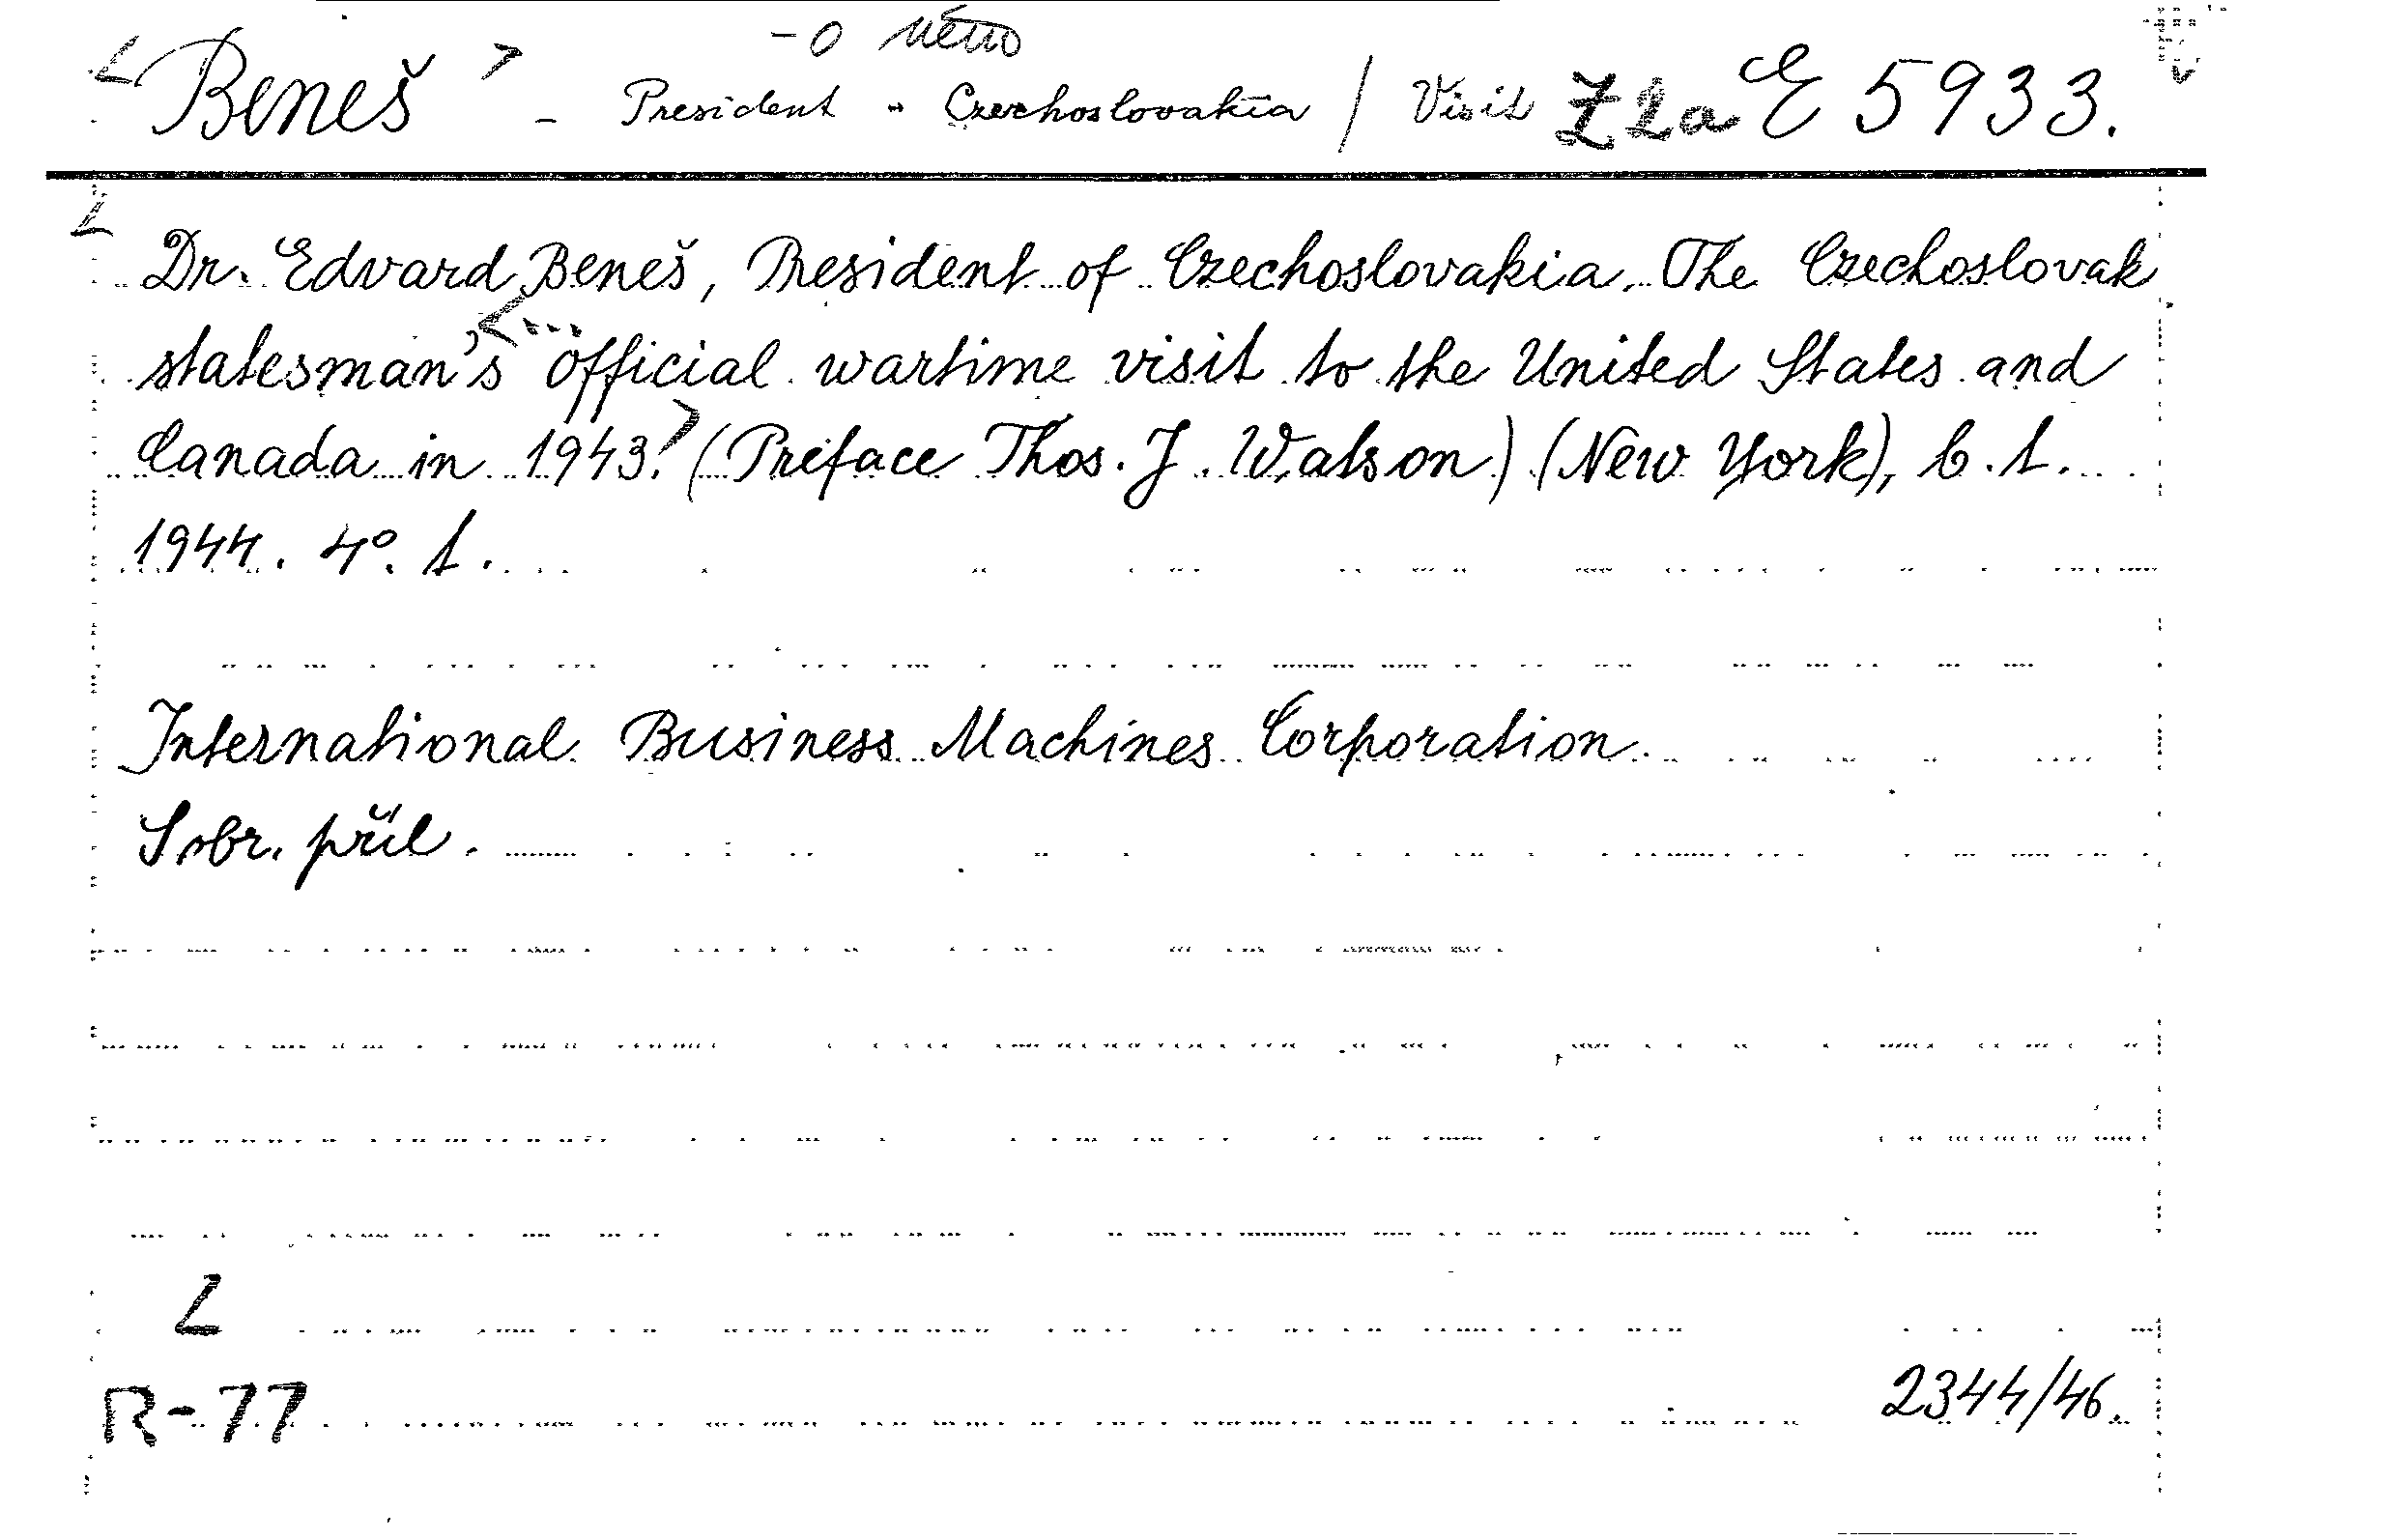 - o němo
<Beneš> - President - Czechoslovakia / Visit Z2a E 5933.
Dr. Edvard Beneš, President of Czechoslovakia. The Czechoslovak
statesman's <... official wartime visit to the United States and
Canada in 1943.> (Preface Thos. J. Watson) (New York), b. t.
1944. 4°. 1.
International Business Machines Corporation.
Sobr. příl.
Z
R-77
2344/46.